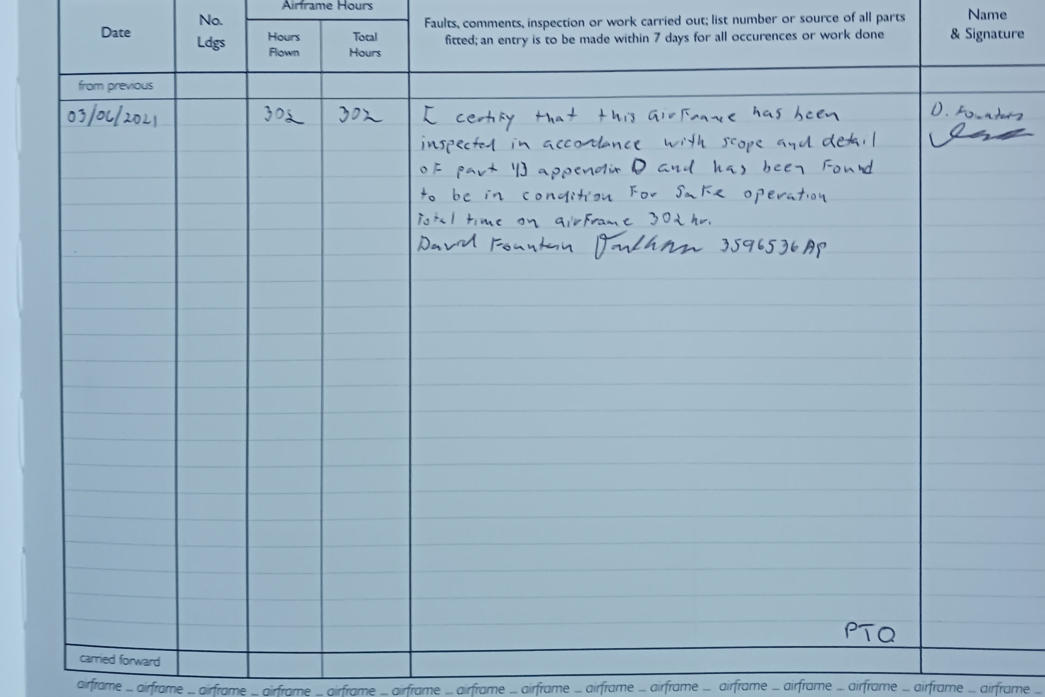 Airframe Hours
Date
No.
Ldgs
Hours
Flown
Total
Hours
Faults, comments, inspection or work carried out; list number or source of all parts
fitted; an entry is to be made within 7 days for all occurences or work done
Name
& Signature
from previous
03/06/2021 302 302 I certify that this airframe has been D. Fountain
inspected in accordance with scope and detail
of part 43 appendix D and has been found
to be in condition for safe operation
Total time on airframe 302 hr.
David Fountain 3596536 AP
PTO
carried forward
airframe _ airframe _ airframe _ airframe _ airframe _ airframe _ airframe _ airframe _ airframe _ airframe _ airframe _ airframe _ airframe _ airframe _ airframe _